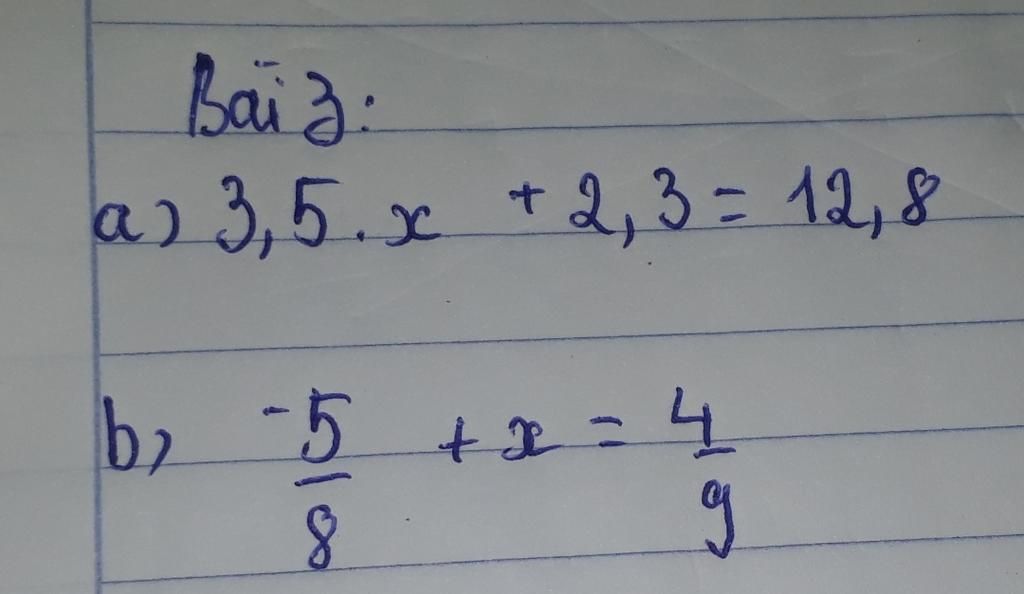 Bài 3:
a) 3,5 . x + 2,3 = 12,8
b) -5/8 + x = 4/9